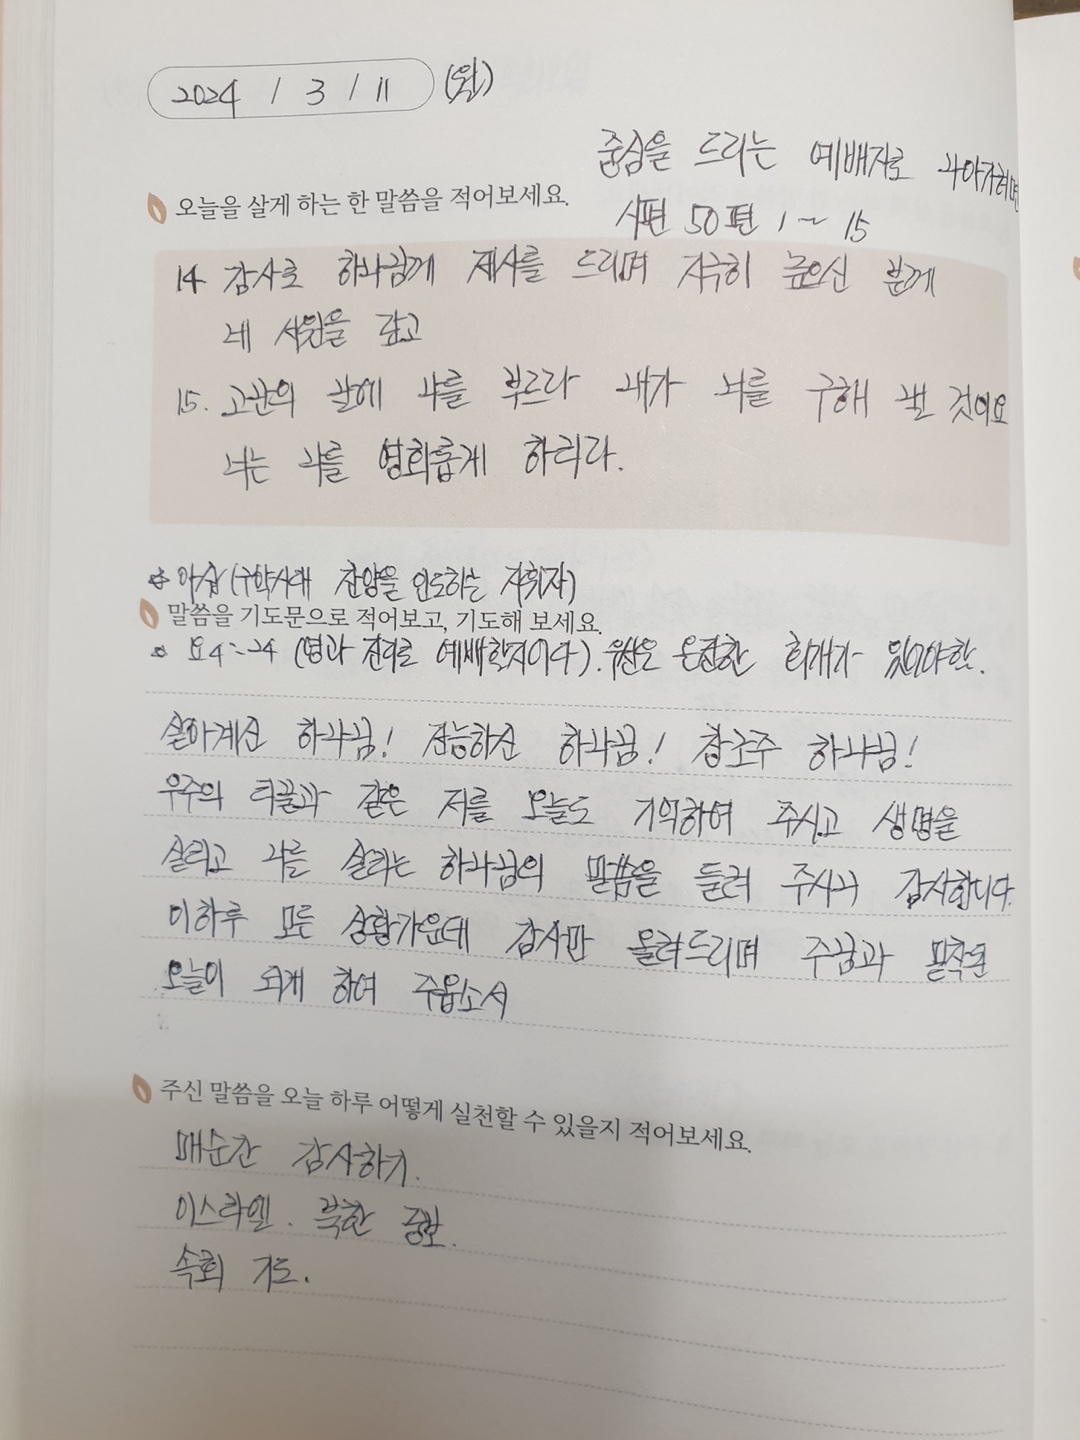 2024 / 3 / 11 (월)
중심을 드리는 예배자로 나아가려면
오늘을 살게 하는 한 말씀을 적어보세요.
시편 50편 1~15
14 감사로 하나님께 제사를 드리며 지극히 높으신 분께
네 서원을 갚고
15. 고난의 날에 나를 부르라 내가 너를 구해 낼 것이요
너는 나를 영화롭게 하리라.
* 아삽(구약시대 찬양을 인도하는 지휘자)
말씀을 기도문으로 적어보고, 기도해 보세요.
* 요4:24 (영과 진리로 예배할지어다). 우선은 온전한 회개가 있어야함.
살아계신 하나님! 전능하신 하나님! 창조주 하나님!
우주의 티끌과 같은 저를 오늘도 기억하여 주시고 생명을
살리고 나를 살리는 하나님의 말씀을 들려 주시니 감사합니다.
이하루 모든 상황가운데 감사만 올려드리며 주님과 밀착된
오늘이 되게 하여 주옵소서
주신 말씀을 오늘 하루 어떻게 실천할 수 있을지 적어보세요.
매순간 감사하기.
이스라엘. 북한 중보.
속회 기도.